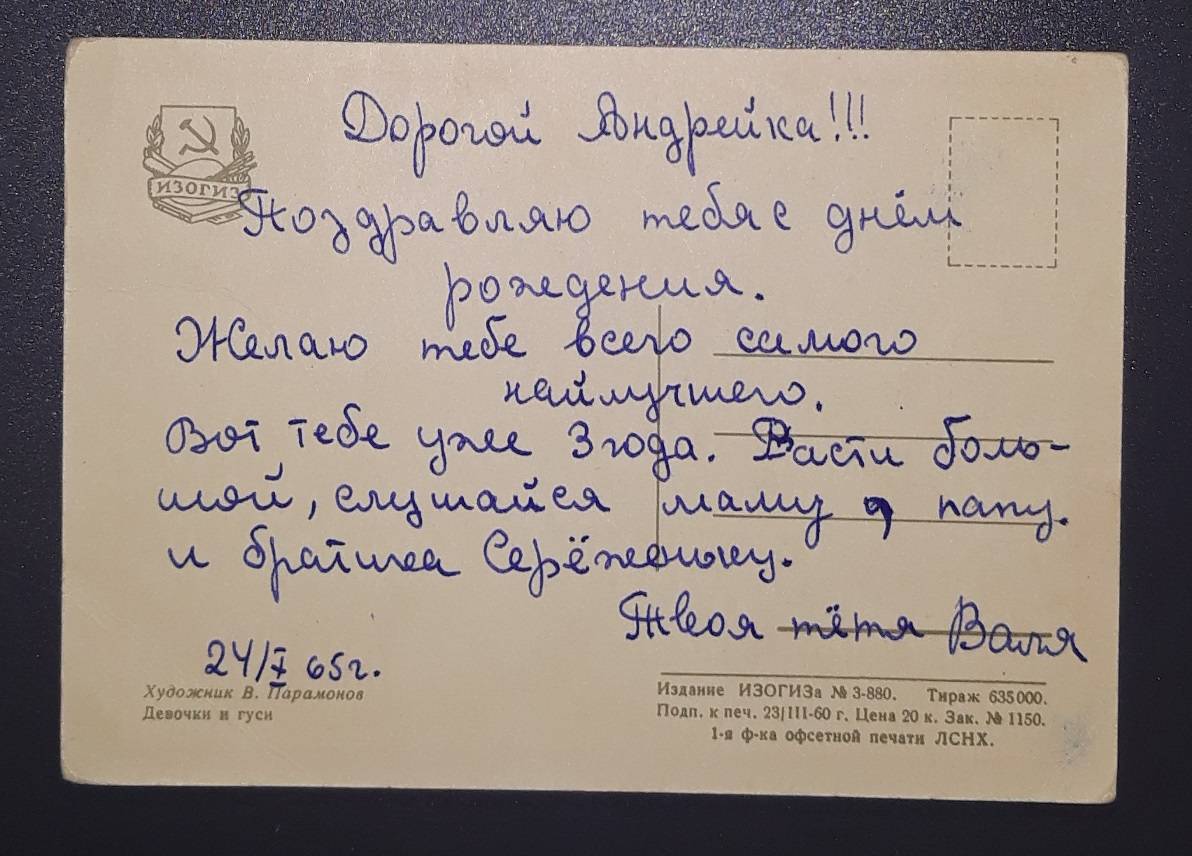 Дорогой Андрейка!!!
ИЗОГИЗ
Поздравляю тебя с днём
рождения.
Желаю тебе всего самого
наилучшего.
Вот тебе уже 3 года. Расти боль-
шой, слушайся маму, папу.
и братика Серёженьку.
Твоя тётя Валя
24/X 65г.
Художник В. Парамонов
Девочки и гуси
Издание ИЗОГИЗа № 3-880. Тираж 635000.
Подп. к печ. 23/III-60 г. Цена 20 к. Зак. № 1150.
1-я ф-ка офсетной печати ЛСНХ.